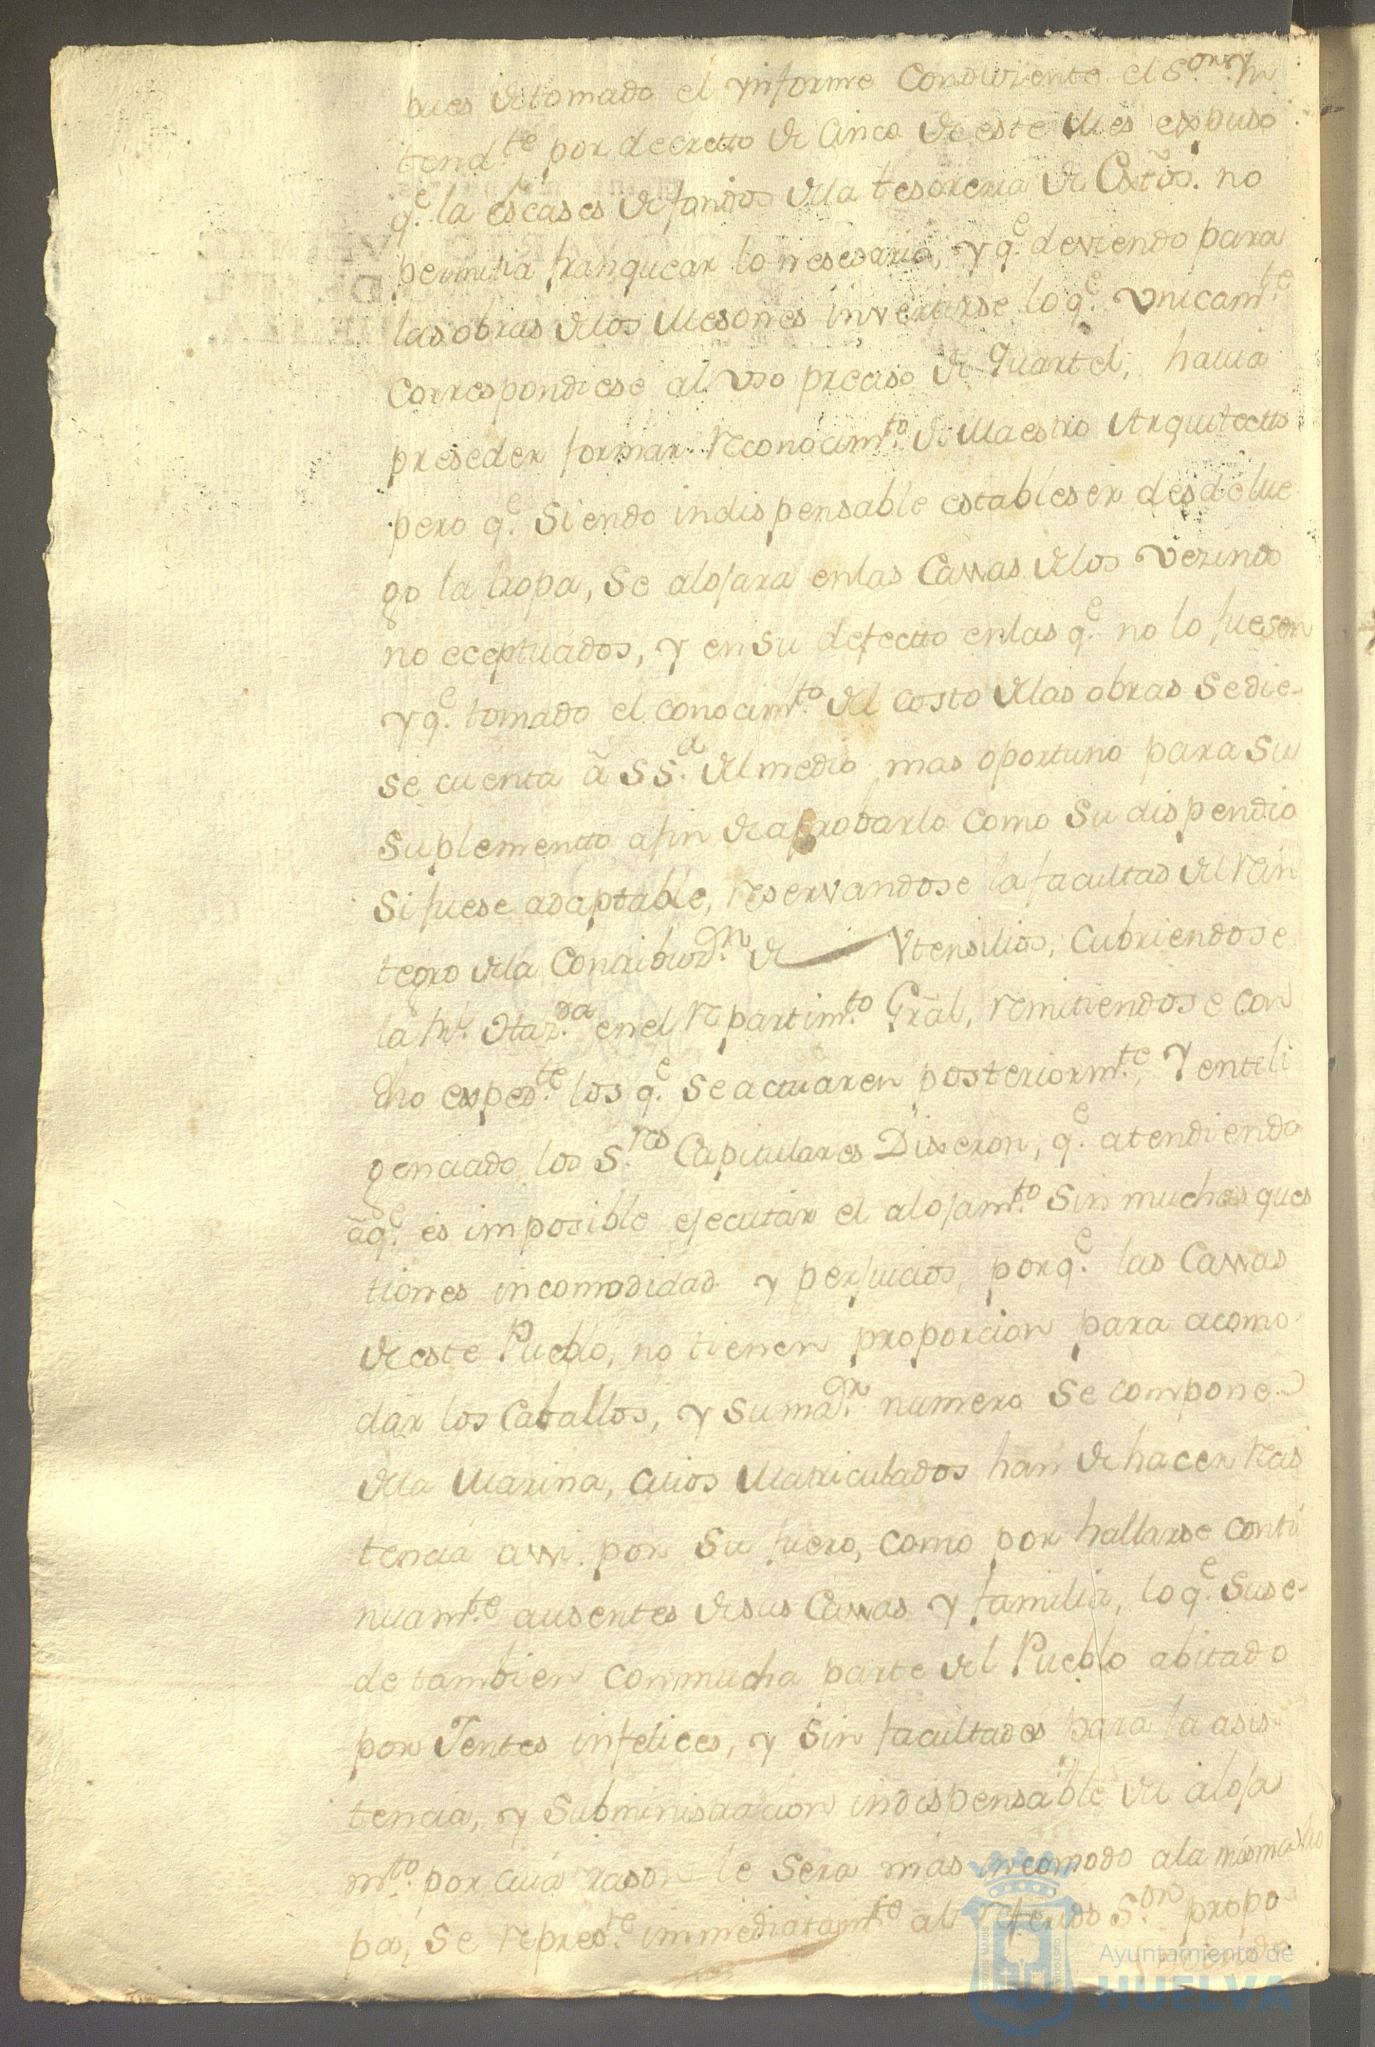 pues de tomado el ynforme Conduzente el S.or Yn
tend.te por decretto de Cinco de este Mes expuso
q.e la escases de fondos de la tesoreria de Extõs. no
permitia franquear lo nesesario, y q.e deviendo para
las obras de los Mesones invertirse lo q.e Unicam.te
correspondiese al Uso preciso de Quartel, havia
preseder formar Reconocim.to de Maestro Arquitecto
pero q.e siendo indispensable estableser desde lue
go la tropa, se alojara en las Cassas de los Vezinos
no eceptuados, y en su defectto en las q.e no lo fuesen
y q.e tomado el conocim.to del costo de las obras se die-
se cuenta â S S.a del medio mas oportuno para su
suplementto a fin de aprobarlo como su dispendio
si fuese adaptable, reservandose la facultad del Rein
tegro de la Contribuz.on de Utensilios, Cubriendose
la Rl. Haz.da en el Repartim.to Grãl, remitiendose con
dho exped.te los q.e se actuaren posteriorm.te, Y enteli
genciado los S.res Capitulares Dixeron, q.e atendiendo
â q.e es imposible ejecutar el alojam.to sin muchas ques
tiones incomodidad y perjuicios, porq.e las Cassas
de este Pueblo, no tienen proporcion para acomo
dar los Caballos, y su ma.or numero se compone
de la Marina, cuios Matriculados han de hacer Resis
tencia assi por su fuero, como por hallarse conti
nuam.te ausentes de sus Cassas y familia, lo q.e suse-
de tambien con mucha parte del Pueblo abitado
por Jentes infelices, y sin facultades para la asis
tencia, y subministracion indispensable de aloja
m.to por cuia rason le sera mas incomodo a la misma tro
pa, se repres.te immediatam.te al referido S.or propo
Ayuntamiento de
HUELVA